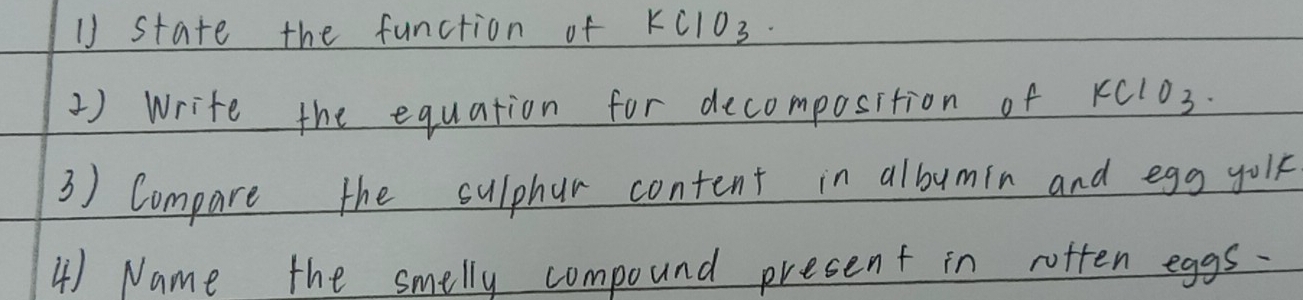 1) State the function of KClO3.
2) Write the equation for decomposition of KClO3.
3) Compare the sulphur content in albumin and egg yolk.
4) Name the smelly compound present in rotten eggs.